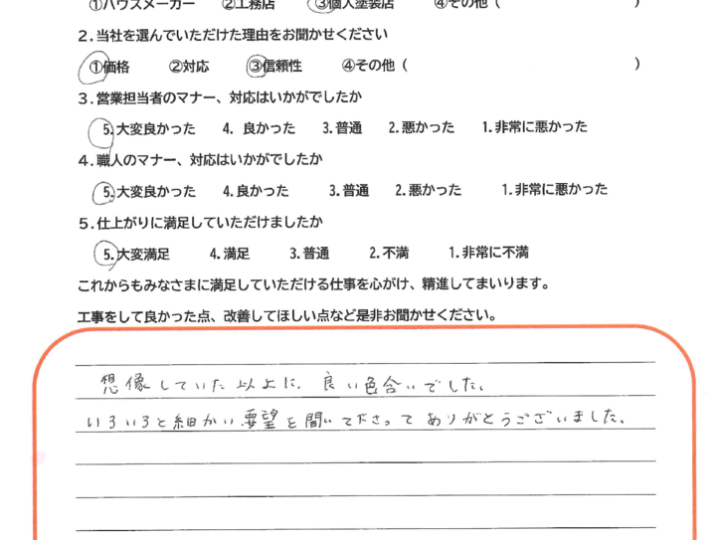 ①ハウスメーカー ②工務店 ③個人塗装店 ④その他（ ）
2.当社を選んでいただけた理由をお聞かせください
①価格 ②対応 ③信頼性 ④その他（ ）
3.営業担当者のマナー、対応はいかがでしたか
5.大変良かった 4. 良かった 3.普通 2.悪かった 1.非常に悪かった
4.職人のマナー、対応はいかがでしたか
5.大変良かった 4.良かった 3.普通 2.悪かった 1.非常に悪かった
5.仕上がりに満足していただけましたか
5.大変満足 4.満足 3.普通 2.不満 1.非常に不満
これからもみなさまに満足していただける仕事を心がけ、精進してまいります。
工事をして良かった点、改善してほしい点など是非お聞かせください。
想像していた以上に、良い色合いでした。
いろいろと細かい要望を聞いて下さってありがとうございました。